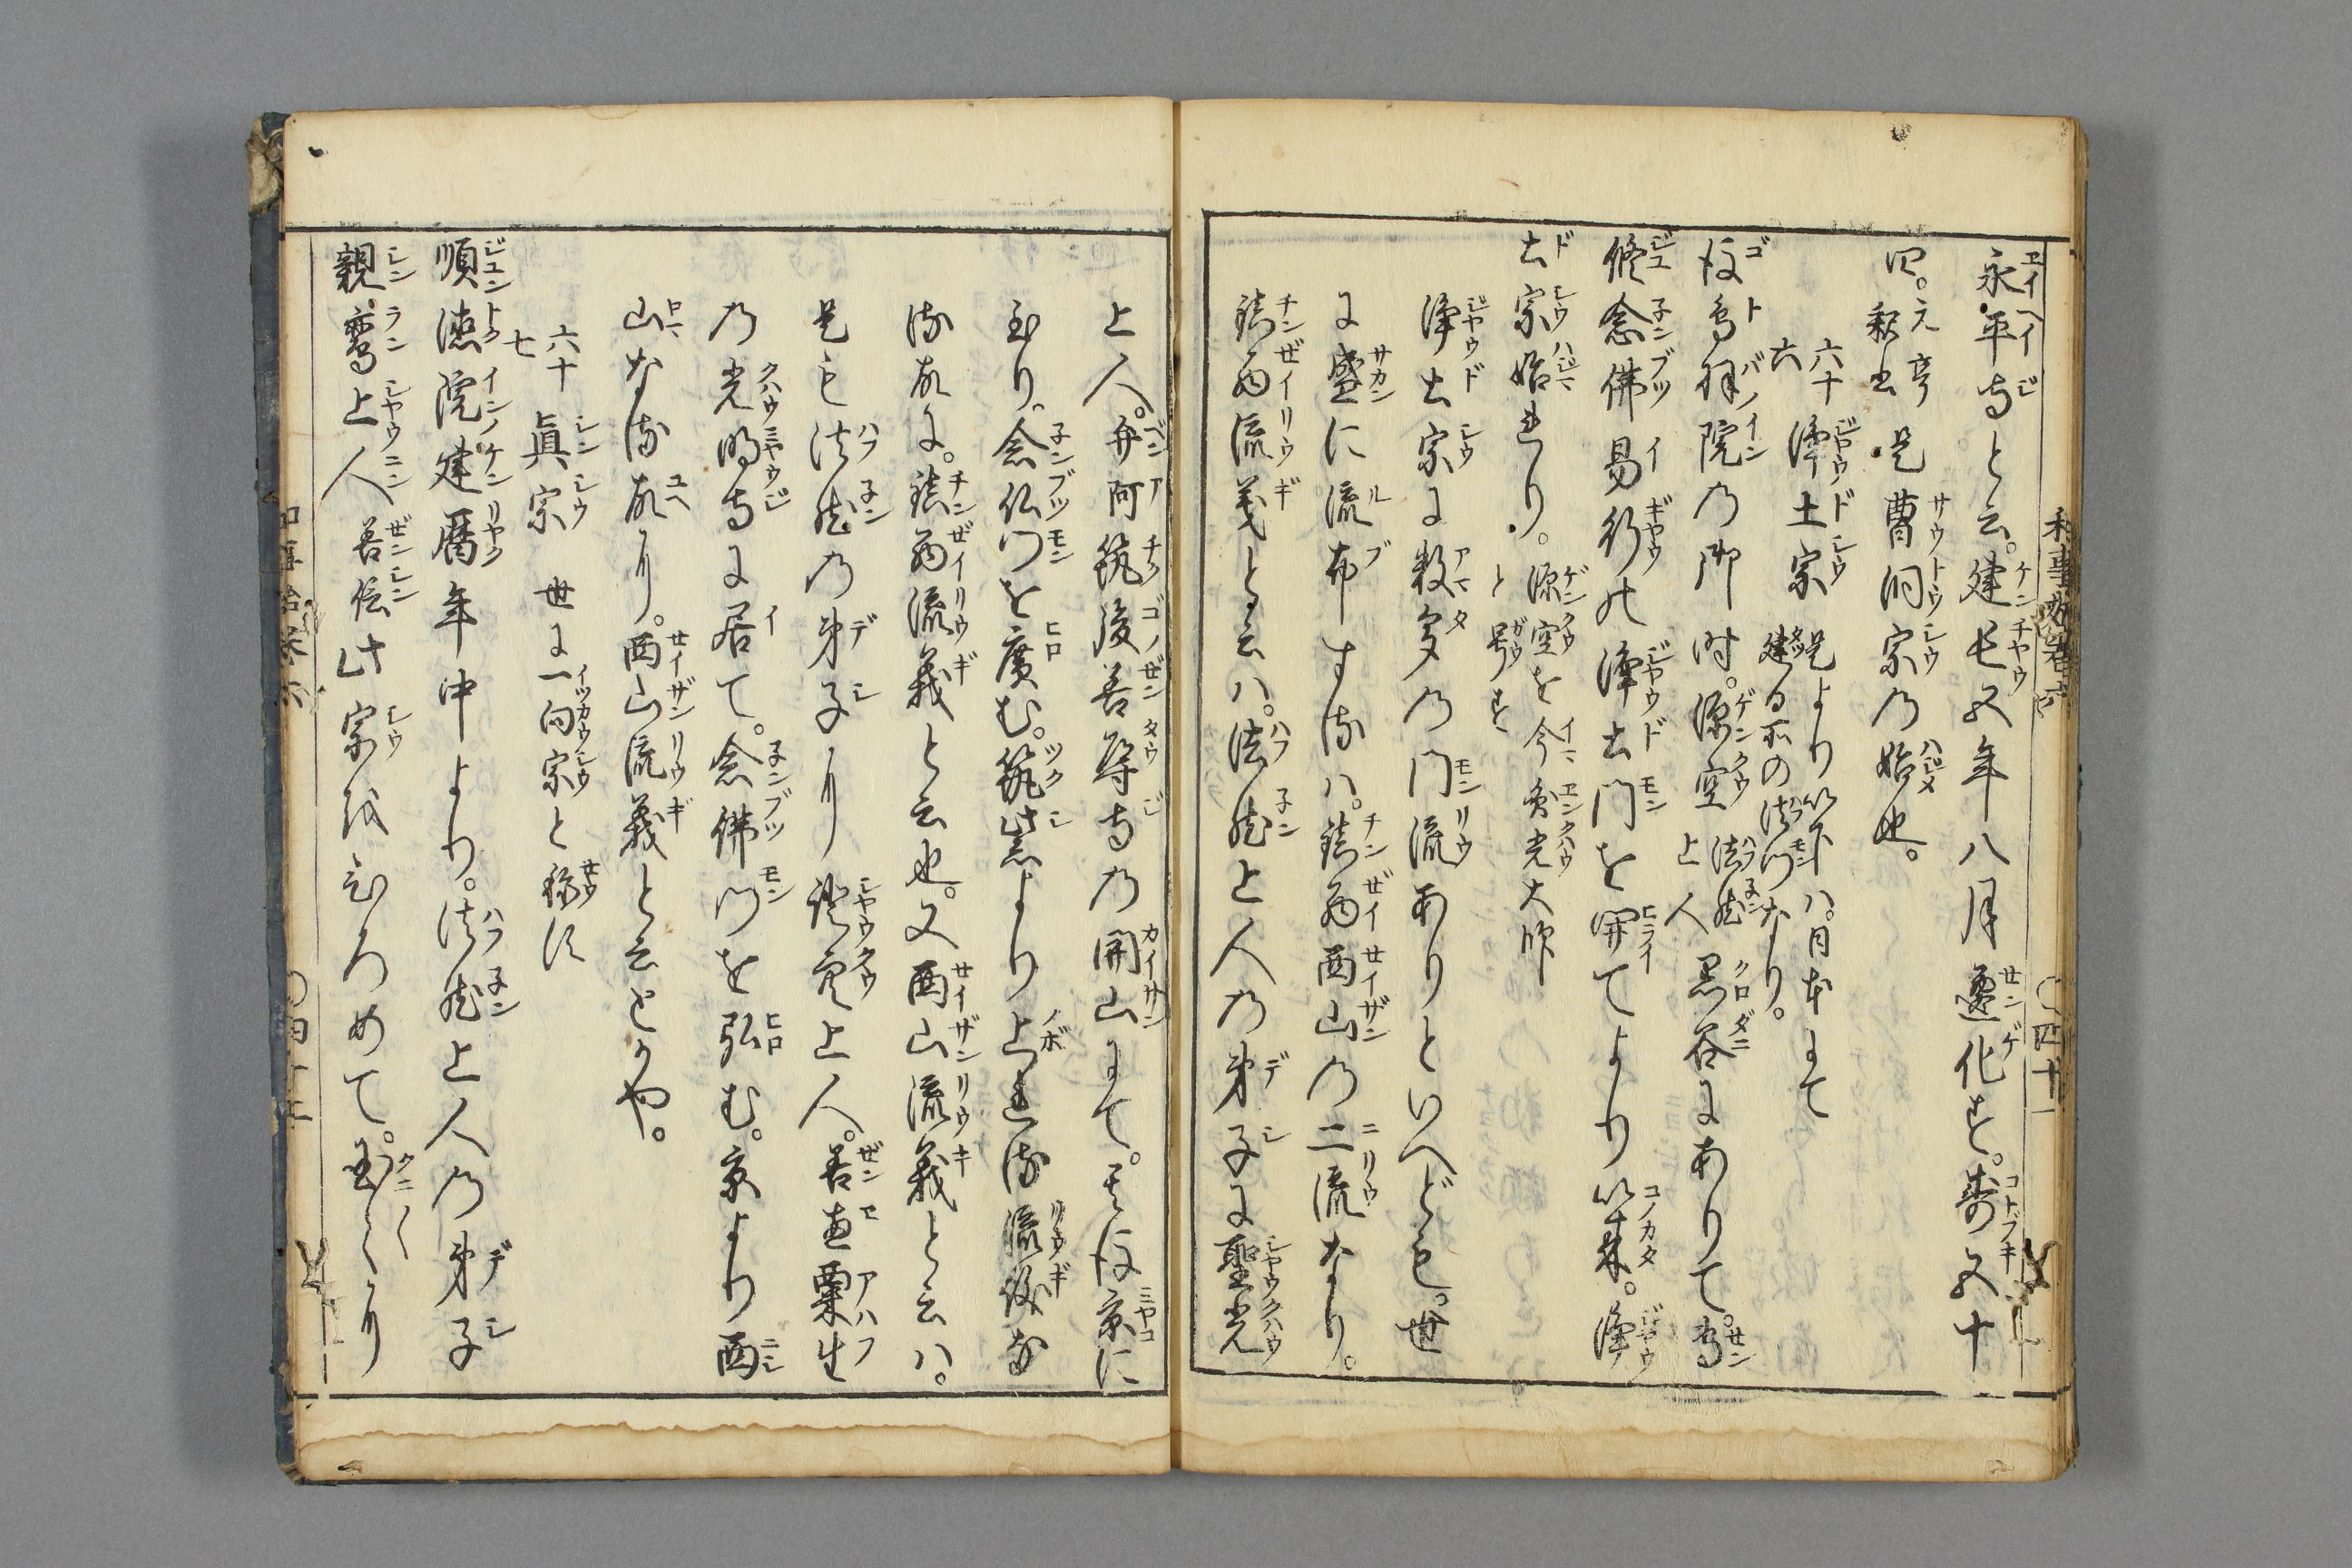 永平寺と云。建長五年八月遷化す。壽五十
四。元亨釈書 是曹洞宗乃始也。
六十六 浄土宗 是より以下ハ。日本にて建る所の法門なり。
後鳥羽院乃御時。源空 法然上人 黒谷にありて。専
修念佛易行の浄土門を開てより以来。浄
土宗始れり。源空を今圓光大師と号す
浄土宗に数多乃門流ありといへども。世
に盛に流布する ハ。鎮西西山乃二流なり。
鎮西流義と云ハ。法然上人乃弟子に聖光
上人。弁阿筑後善導寺乃開山にて。其後京に
至り。念仏門を廣む。筑紫より上れる流儀な
る故に。鎮西流義と云也。又西山流義と云ハ。
是も法然乃弟子より證空上人。善恵粟生
乃光明寺に居て。念佛門を弘む。京より西
山なる故に。西山流義と云とかや。
六十七 眞宗 世に一向宗と称す
順德院建暦年中より。法然上人乃弟子
親鸞上人 善信 此宗をひろめて。国〳〵に
和事始巻六
〇四十一